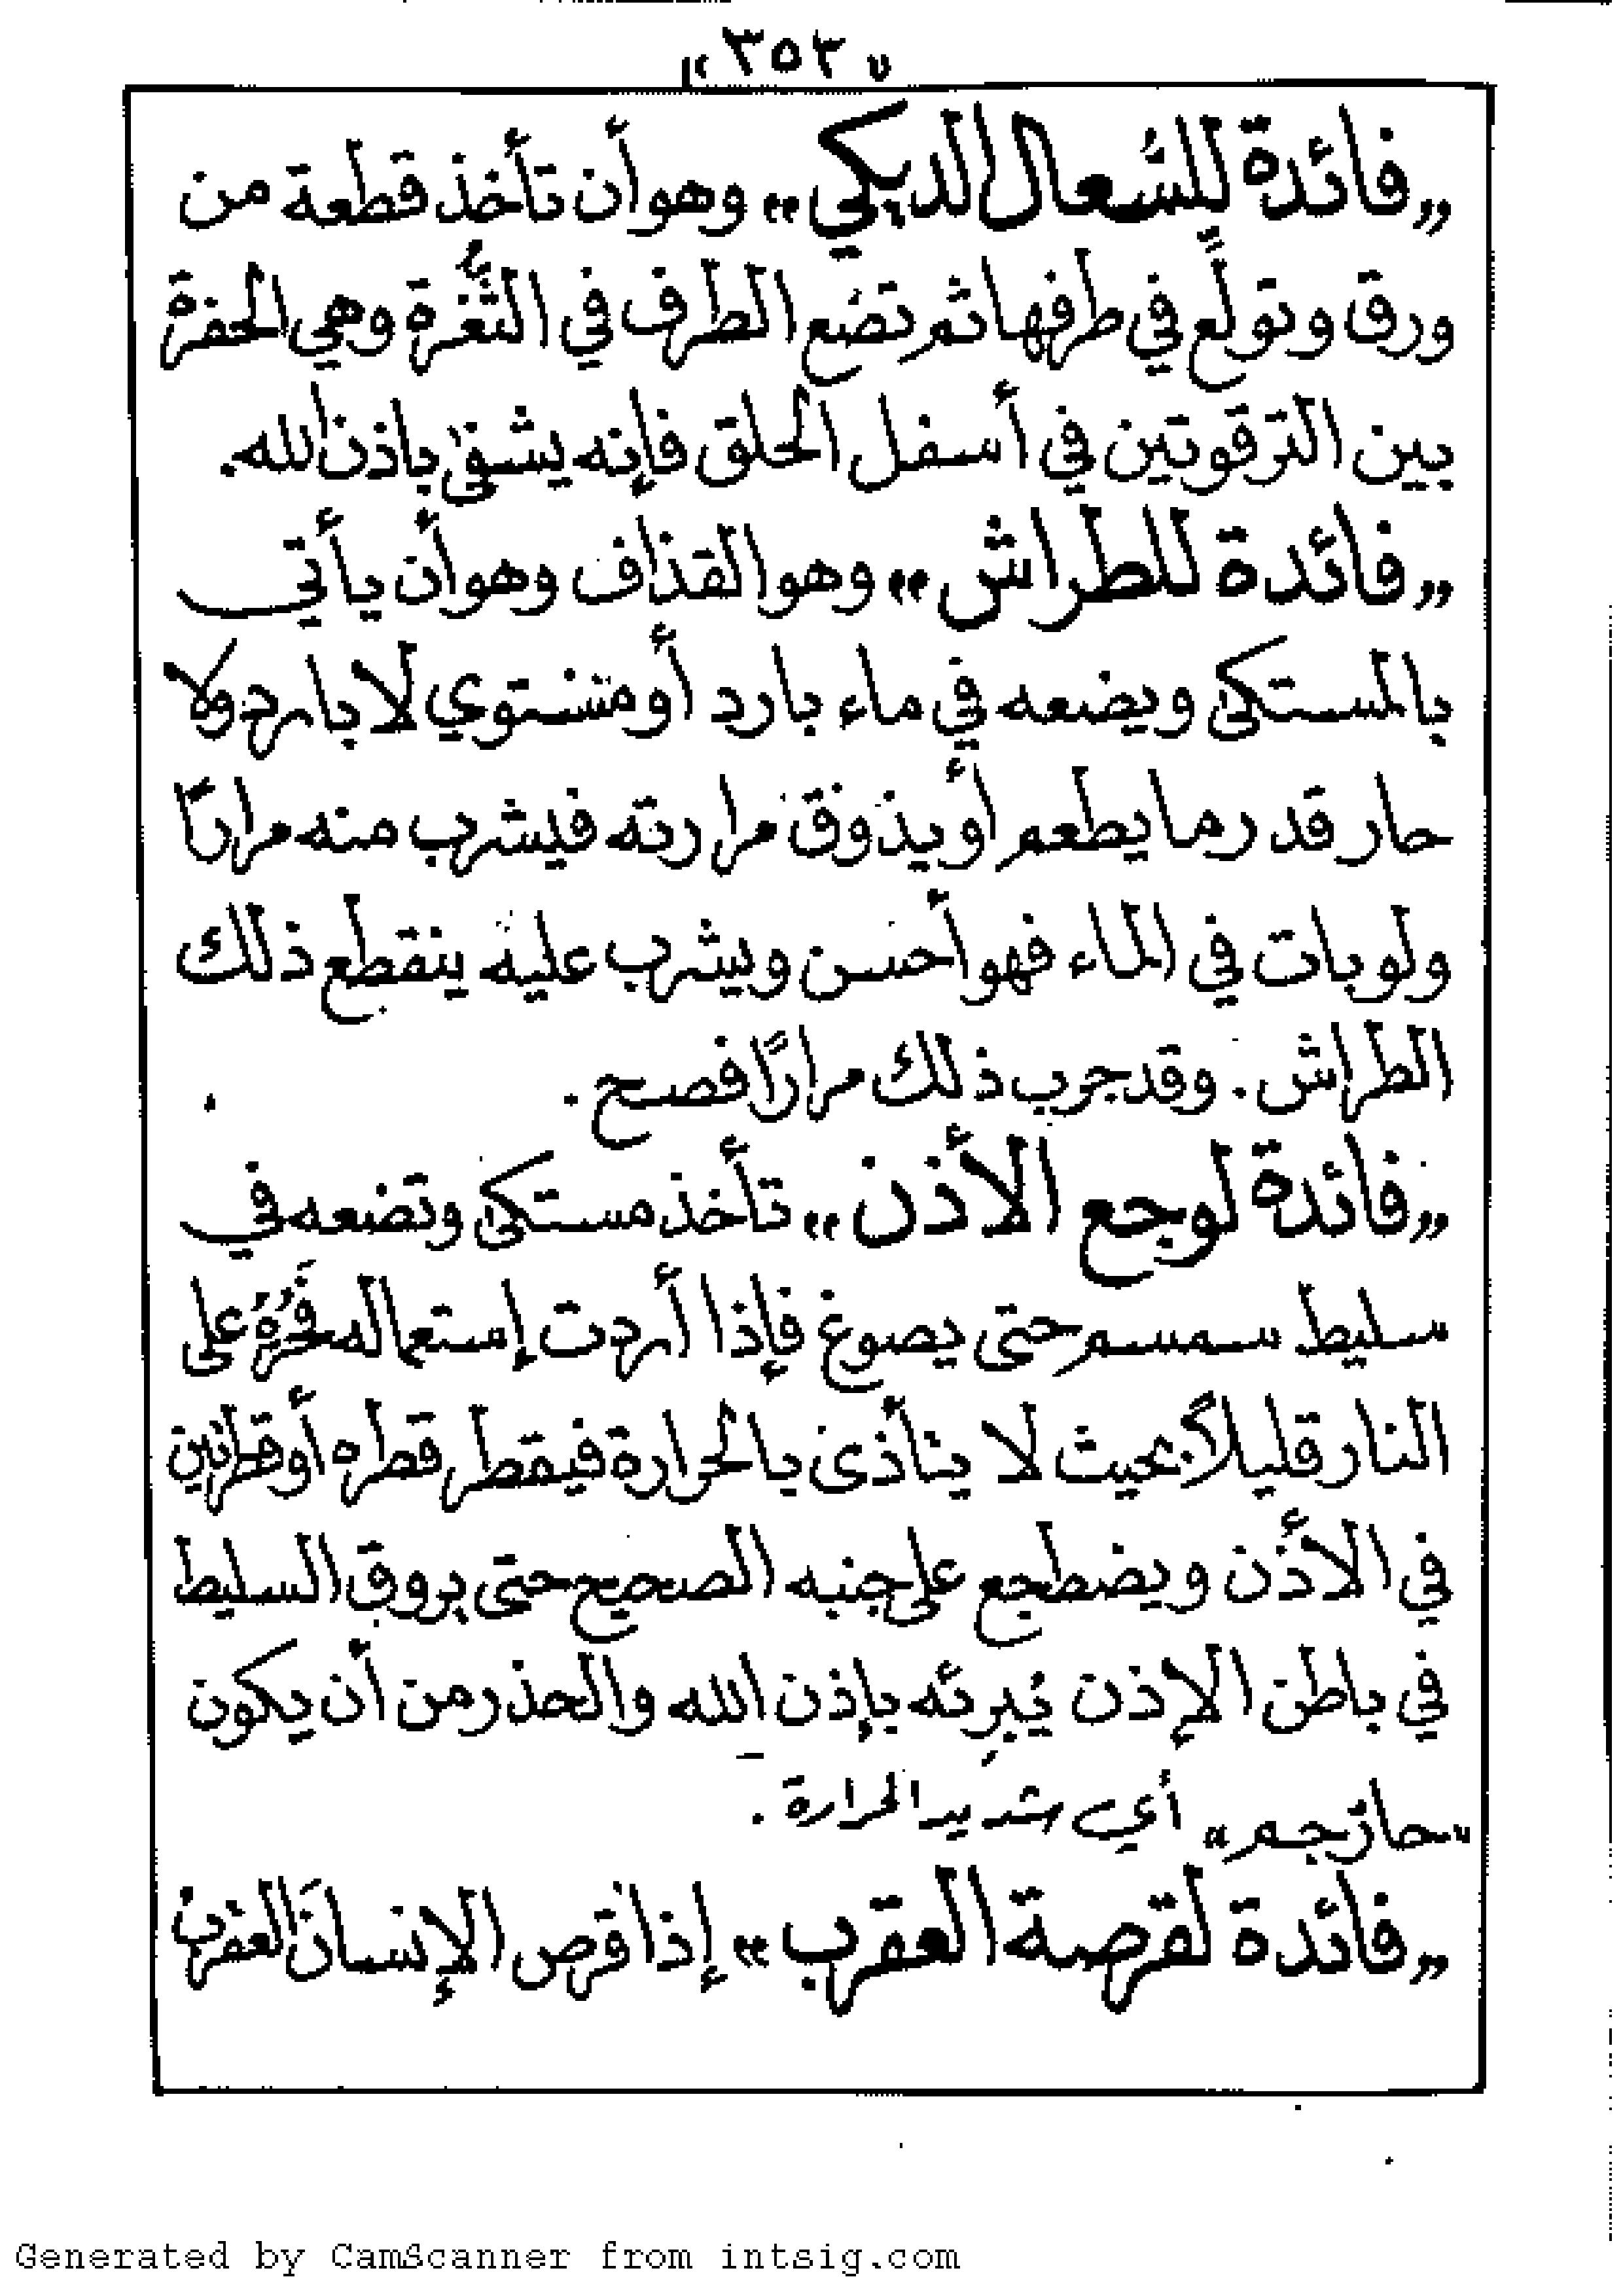 "٣٥٣"
«فائدة للسُعال الديكي» وهو أن تأخذ قطعة من
ورق وتولّع في طرفها ثم تضع الطرف في الثُّغرة وهي الحفرة
بين الترقوتين في أسفل الحلق فإنه يشفى باذن الله.
«فائدة للطراش» وهو القذاف وهو أن يأتي
بالمستكى ويضعه في ماء بارد أو مشتوي لا بارد ولا
حار قدر ما يطعم أو يذوق مرارته فيشرب منه مرارًا
ولو بات في الماء فهو أحسن ويشرب عليه ينقطع ذلك
الطراش. وقد جرب ذلك مرارًا فصح.
«فائدة لوجع الأذن» تأخذ مستكى وتضعه في
سليط سمسم حتى يصوغ فإذا أردت إستعماله على
النار قليلاً بحيث لا يتأذى بالحرارة فيقطر قطره أو قطرتين
في الأذن ويضطجع على جنبه الصحيح حتى يروق السليط
في باطن الإذن يُبرِئه بإذن الله والحذر من أن يكون
"حار جم" أي شديد الحرارة.
«فائدة لقرصة العقرب» إذا قرص الإنسانَ العقربُ
Generated by CamScanner from intsig.com